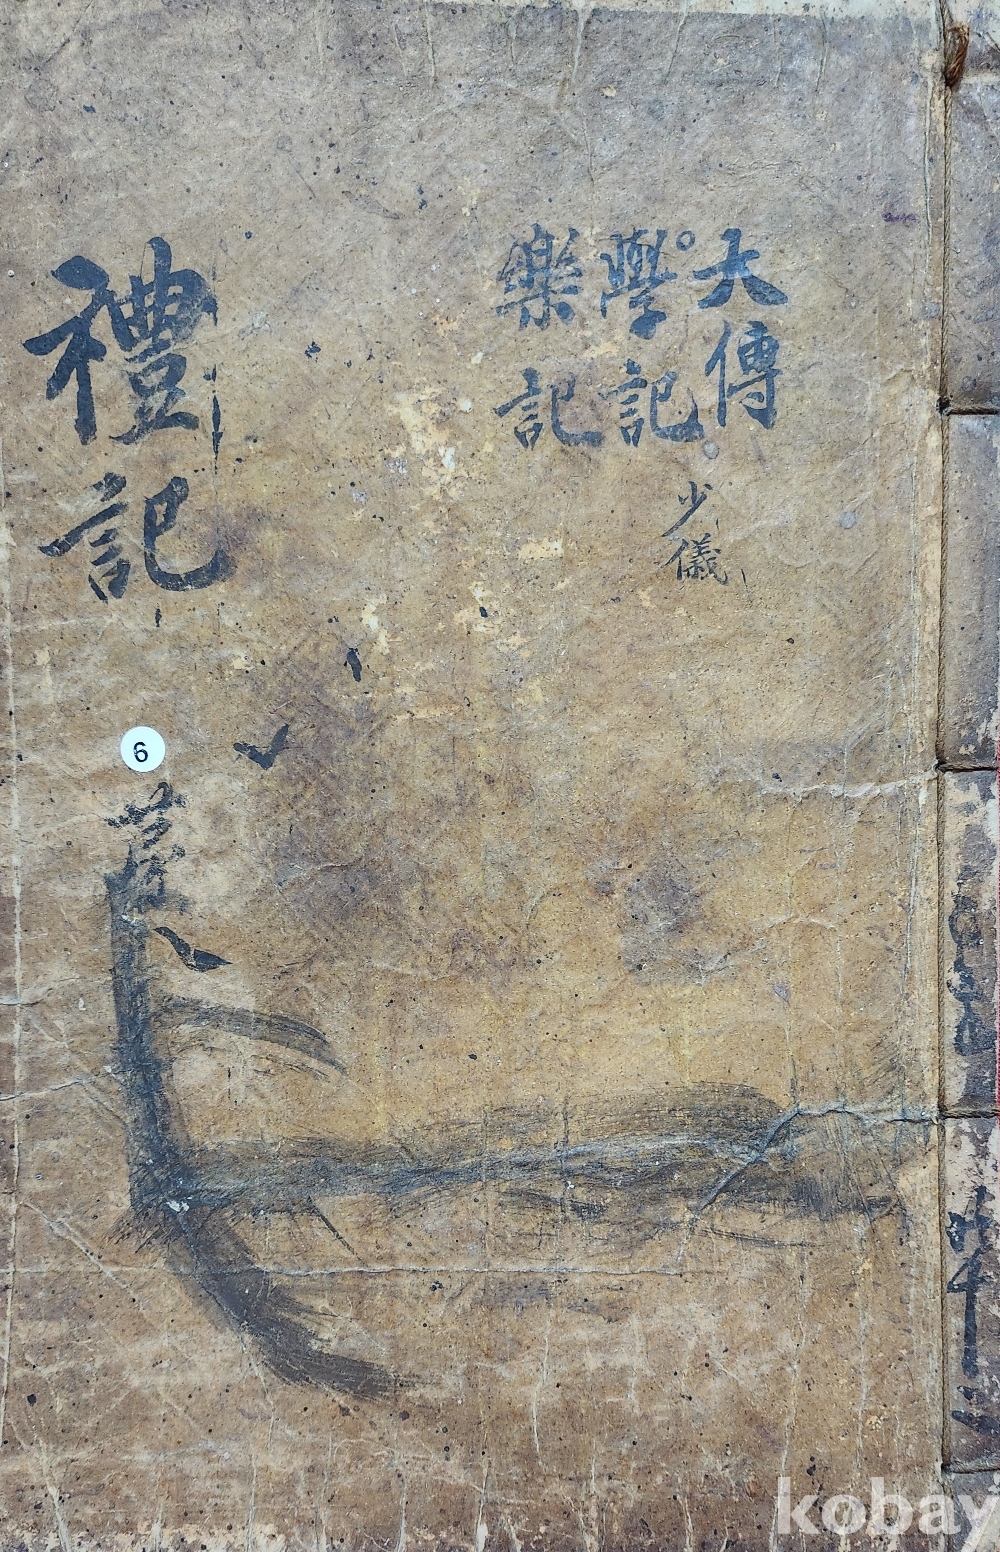 大傳
少儀
學記
樂記
禮記
6
kobay